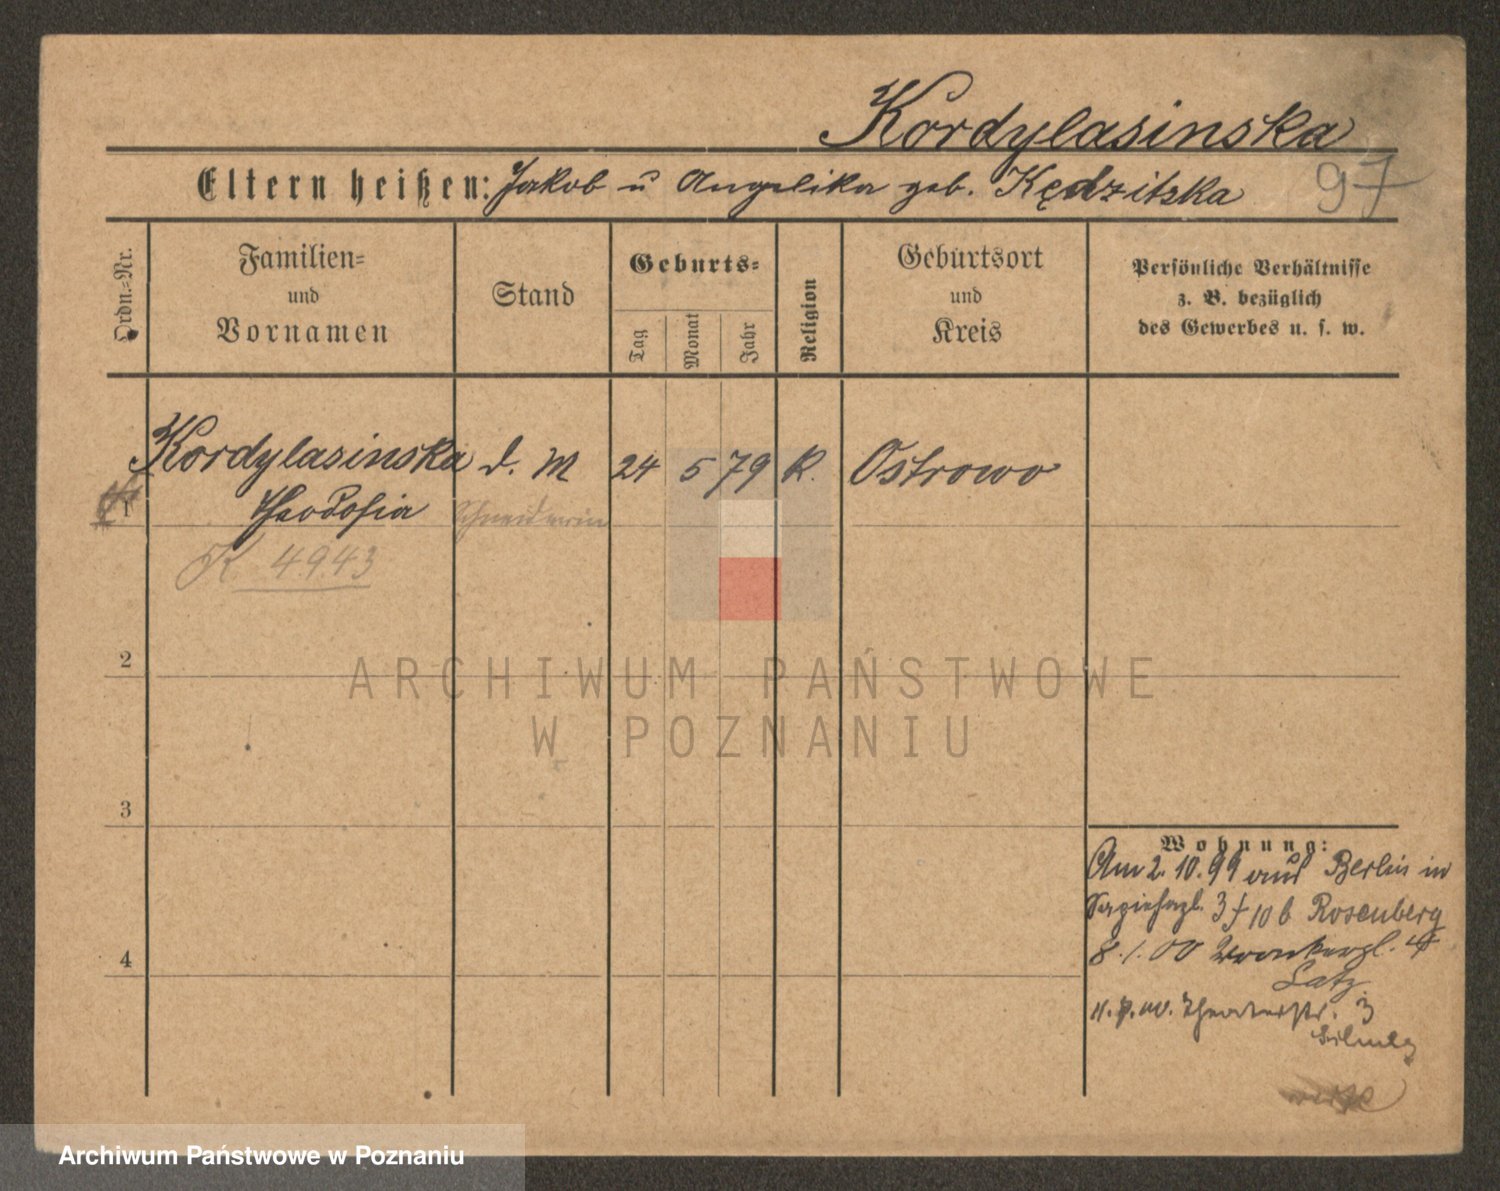 Kordylasinska
Eltern heißen: Jakob u Angelika geb. Kędzitzka
97
Ordn.=Nr.
Familien=
und
Vornamen
Stand
Geburts=
Tag
Monat
Jahr
Religion
Geburtsort
und
Kreis
Persönliche Verhältnisse
z. B. bezüglich
des Gewerbes u. s. w.
Kordylasinska d. M 24 5 79 K. Ostrowo
1 Theodosia Schneiderin
K 4943
2
ARCHIWUM PAŃSTWOWE
W POZNANIU
3
Wohnung:
Am 2. 10. 99 aus Berlin in
Sapiehapl. 3 10 b Rosenberg
4
8. 1. 00 Wronkerpl.
Latz
Theaterstr. 3
Archiwum Państwowe w Poznaniu